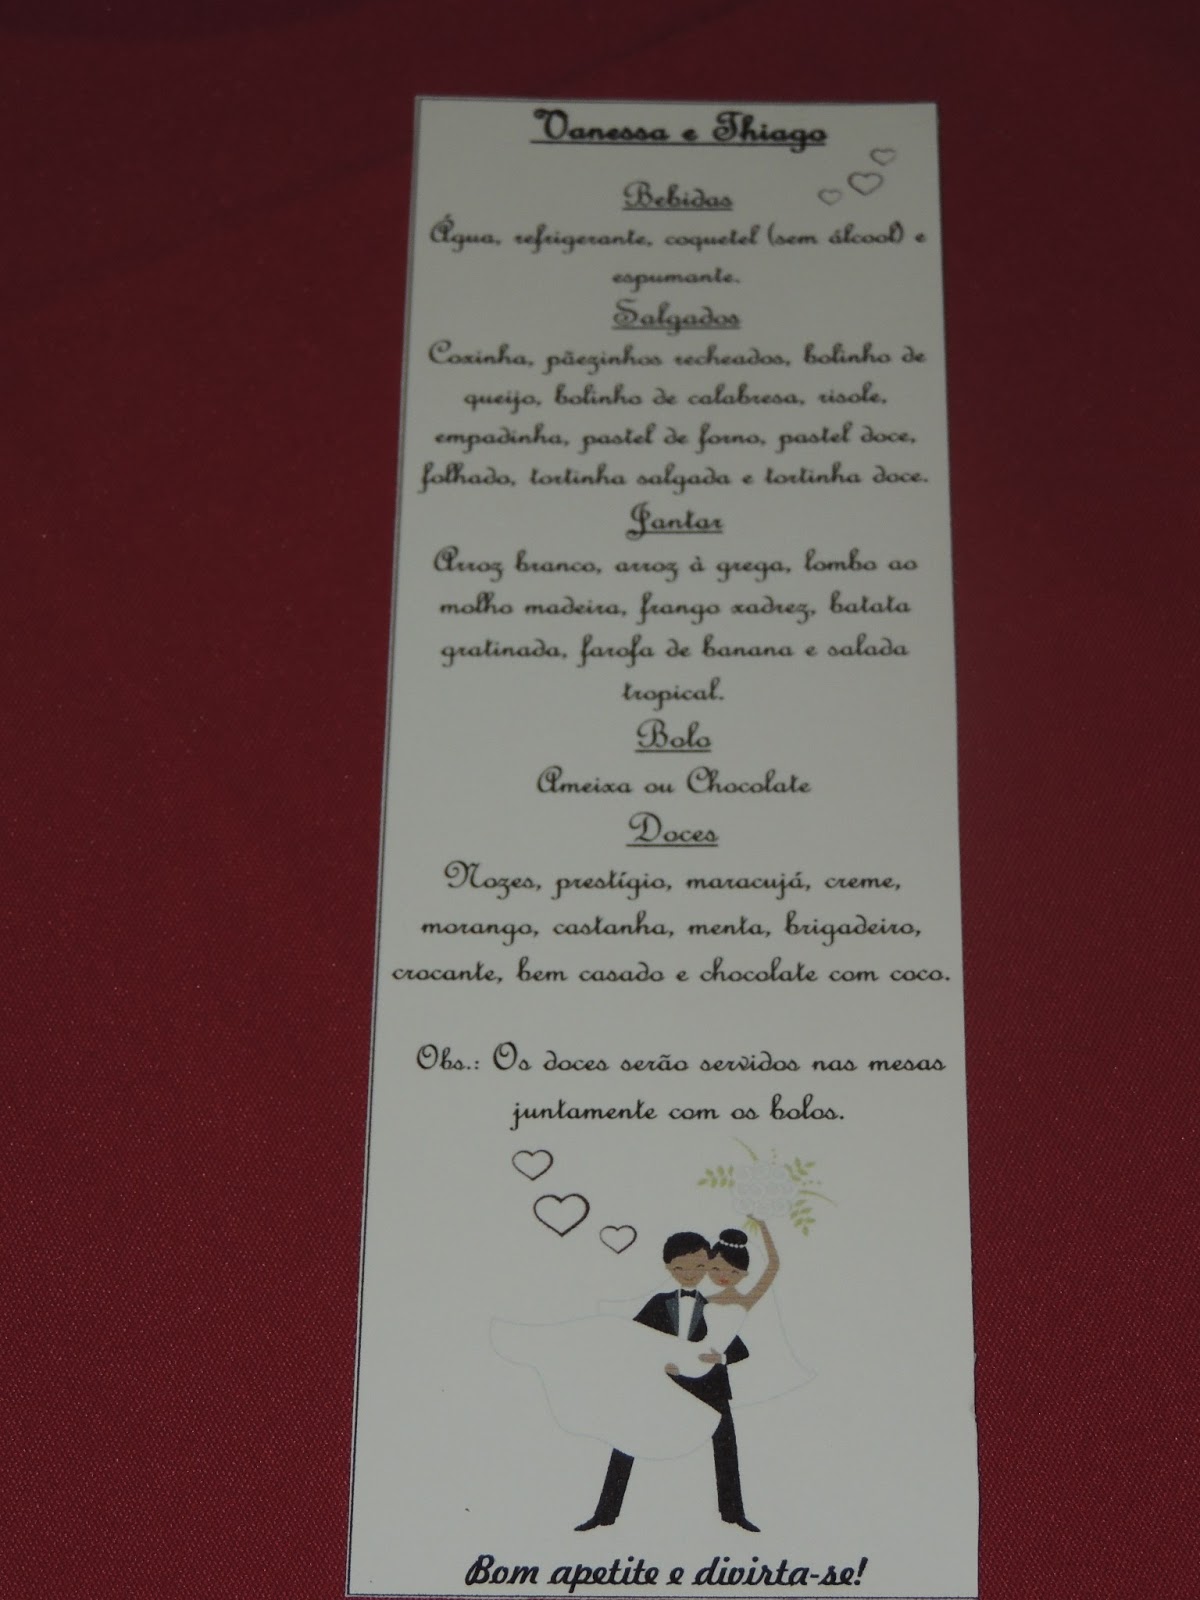 Vanessa e Thiago
Bebidas
Água, refrigerante, coquetel (sem álcool) e
espumante.
Salgados
Coxinha, pãezinhos recheados, bolinho de
queijo, bolinho de calabresa, risole,
empadinha, pastel de forno, pastel doce,
folhado, tortinha salgada e tortinha doce.
Jantar
Arroz branco, arroz à grega, lombo ao
molho madeira, frango xadrez, batata
gratinada, farofa de banana e salada
tropical.
Bolo
Ameixa ou Chocolate
Doces
Nozes, prestígio, maracujá, creme,
morango, castanha, menta, brigadeiro,
crocante, bem casado e chocolate com coco.
Obs.: Os doces serão servidos nas mesas
juntamente com os bolos.
Bom apetite e divirta-se!